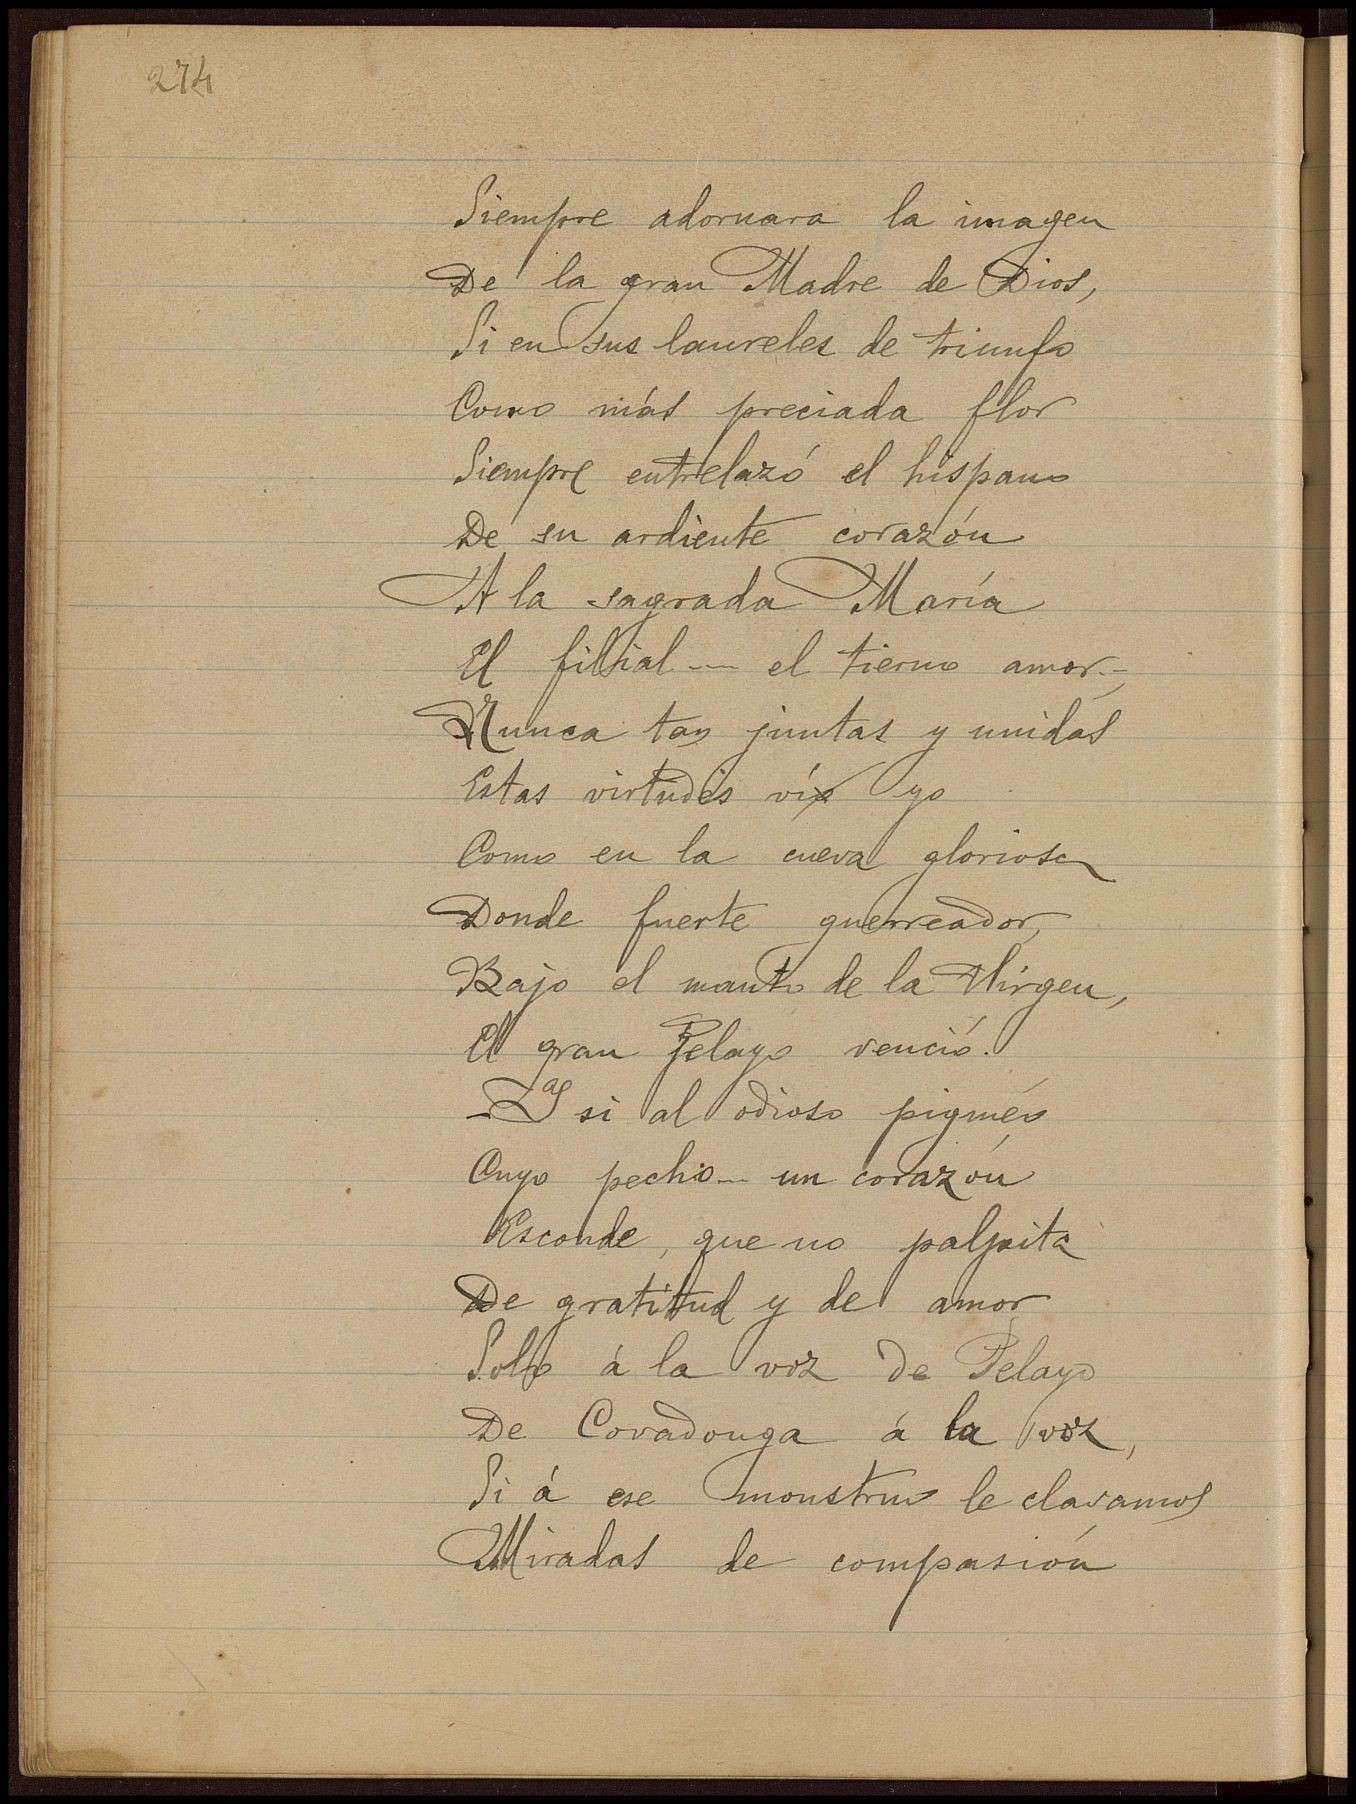 274
Siempre adornara la imagen
De la gran Madre de Dios,
Si en sus laureles de triunfo
Como más preciada flor
Siempre entrelazó el hispano
De su ardiente corazón
A la sagrada María
El filial — el tierno amor.—
Nunca tan juntas y unidas
Estas virtudes vío yo
Como en la cueva gloriosa
Donde fuerte guerreador,
Bajo el manto de la Virgen,
El gran Pelayo venció.
Y si al odioso pigméo
Cuyo pecho — un corazón
Esconde, que no palpita
De gratitud y de amor
Solo á la voz de Pelayo
De Covadonga á la voz,
Si á ese monstruo le clavamos
Miradas de compasión